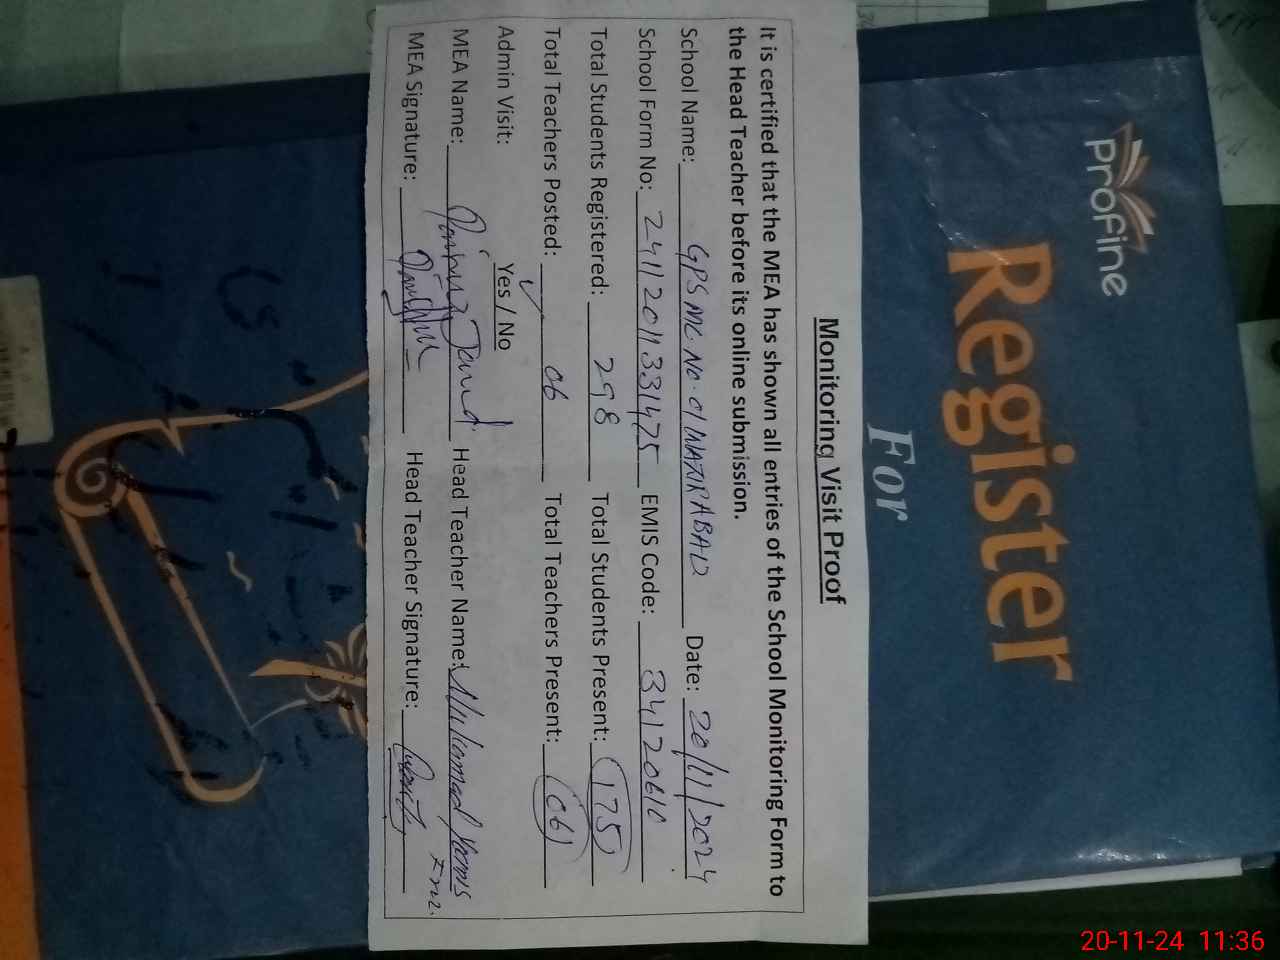 Monitoring Visit Proof
It is certified that the MEA has shown all entries of the School Monitoring Form to
the Head Teacher before its online submission.
School Name: GPS MC NO. 01 WAZIRABAD Date: 20/11/2024
School Form No: 24112011331475 EMIS Code: 34120610
Total Students Registered: 298 Total Students Present: 175
Total Teachers Posted: 06 Total Teachers Present: 06
Admin Visit: Yes / No
MEA Name: Javid Head Teacher Name: Muhammad
MEA Signature: Head Teacher Signature:
Profine
Register
For
20-11-24 11:36